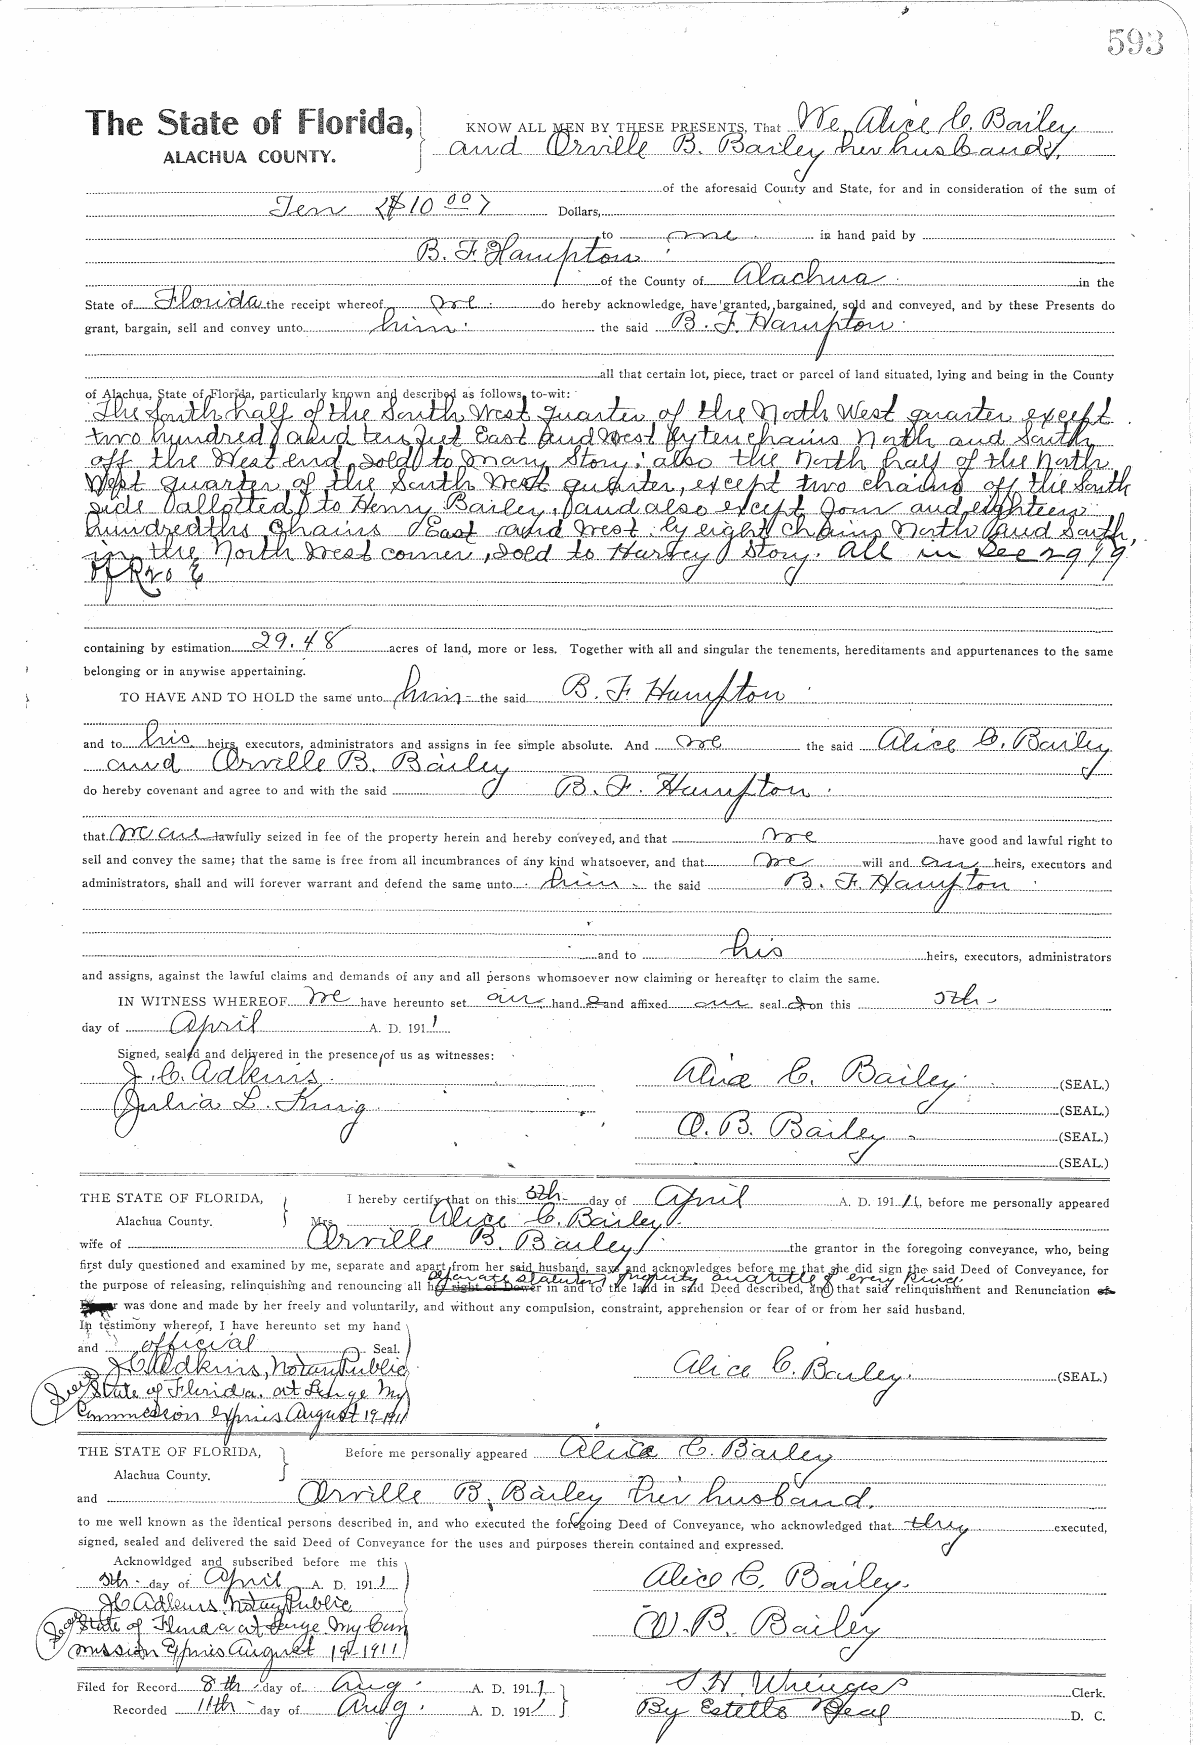 593
The State of Florida, KNOW ALL MEN BY THESE PRESENTS, That We, Alice C. Bailey
ALACHUA COUNTY. and Orville B. Bailey her husband,
of the aforesaid County and State, for and in consideration of the sum of
Ten ($10 00) Dollars,
to me in hand paid by
B. F. Hampton
of the County of Alachua in the
State of Florida the receipt whereof we do hereby acknowledge, have granted, bargained, sold and conveyed, and by these Presents do
grant, bargain, sell and convey unto him the said B. F. Hampton
all that certain lot, piece, tract or parcel of land situated, lying and being in the County
of Alachua, State of Florida, particularly known and described as follows, to-wit:
The South half of the South West quarter of the North West quarter except
two hundred and ten feet East and West by ten chains North and South
off the West end, sold to Mary Story; also the North half of the North
West quarter of the South West quarter, except two chains off the South
side allotted to Henry Bailey, and also except four and eighteen
hundredths chains East and West by eight chains North and South,
in the North West corner, sold to Harvey Story. All in Sec 29 T9
R20 E
containing by estimation 29.48 acres of land, more or less. Together with all and singular the tenements, hereditaments and appurtenances to the same
belonging or in anywise appertaining.
TO HAVE AND TO HOLD the same unto him the said B. F. Hampton
and to his heirs, executors, administrators and assigns in fee simple absolute. And we the said Alice C. Bailey
and Orville B. Bailey
do hereby covenant and agree to and with the said B. F. Hampton
that we are lawfully seized in fee of the property herein and hereby conveyed, and that we have good and lawful right to
sell and convey the same; that the same is free from all incumbrances of any kind whatsoever, and that we will and our heirs, executors and
administrators, shall and will forever warrant and defend the same unto him the said B. F. Hampton
and to his heirs, executors, administrators
and assigns, against the lawful claims and demands of any and all persons whomsoever now claiming or hereafter to claim the same.
IN WITNESS WHEREOF we have hereunto set our hand s and affixed our seal s on this 5th
day of April A. D. 1911
Signed, sealed and delivered in the presence of us as witnesses:
J. C. Adkins Alice C. Bailey (SEAL.)
Julia L. King (SEAL.)
O. B. Bailey (SEAL.)
(SEAL.)
THE STATE OF FLORIDA, I hereby certify that on this 5th day of April A. D. 1911, before me personally appeared
Alachua County. Mrs. Alice C. Bailey
wife of Orville B. Bailey the grantor in the foregoing conveyance, who, being
first duly questioned and examined by me, separate and apart from her said husband, says and acknowledges before me that she did sign the said Deed of Conveyance, for
separate statutory property and title of every kind
the purpose of releasing, relinquishing and renouncing all her right of Dower in and to the land in said Deed described, and that said relinquishment and Renunciation of
was done and made by her freely and voluntarily, and without any compulsion, constraint, apprehension or fear of or from her said husband.
In testimony whereof, I have hereunto set my hand
and official Seal.
J C Adkins, Notary Public Alice C. Bailey. (SEAL.)
State of Florida. at Large My
Commission expires August 19-1911
THE STATE OF FLORIDA, Before me personally appeared Alice C. Bailey
Alachua County.
and Orville B. Bailey her husband.
to me well known as the identical persons described in, and who executed the foregoing Deed of Conveyance, who acknowledged that they executed,
signed, sealed and delivered the said Deed of Conveyance for the uses and purposes therein contained and expressed.
Acknowldged and subscribed before me this
5th day of April A. D. 1911 Alice C. Bailey.
J C Adkins Notary Public
State of Florida at Large My Com O. B. Bailey
mission Expires August 19-1911
Filed for Record 8th day of Aug. A. D. 1911 S. H. Wienges Clerk.
Recorded 11th day of Aug. A. D. 1911 By D. C.